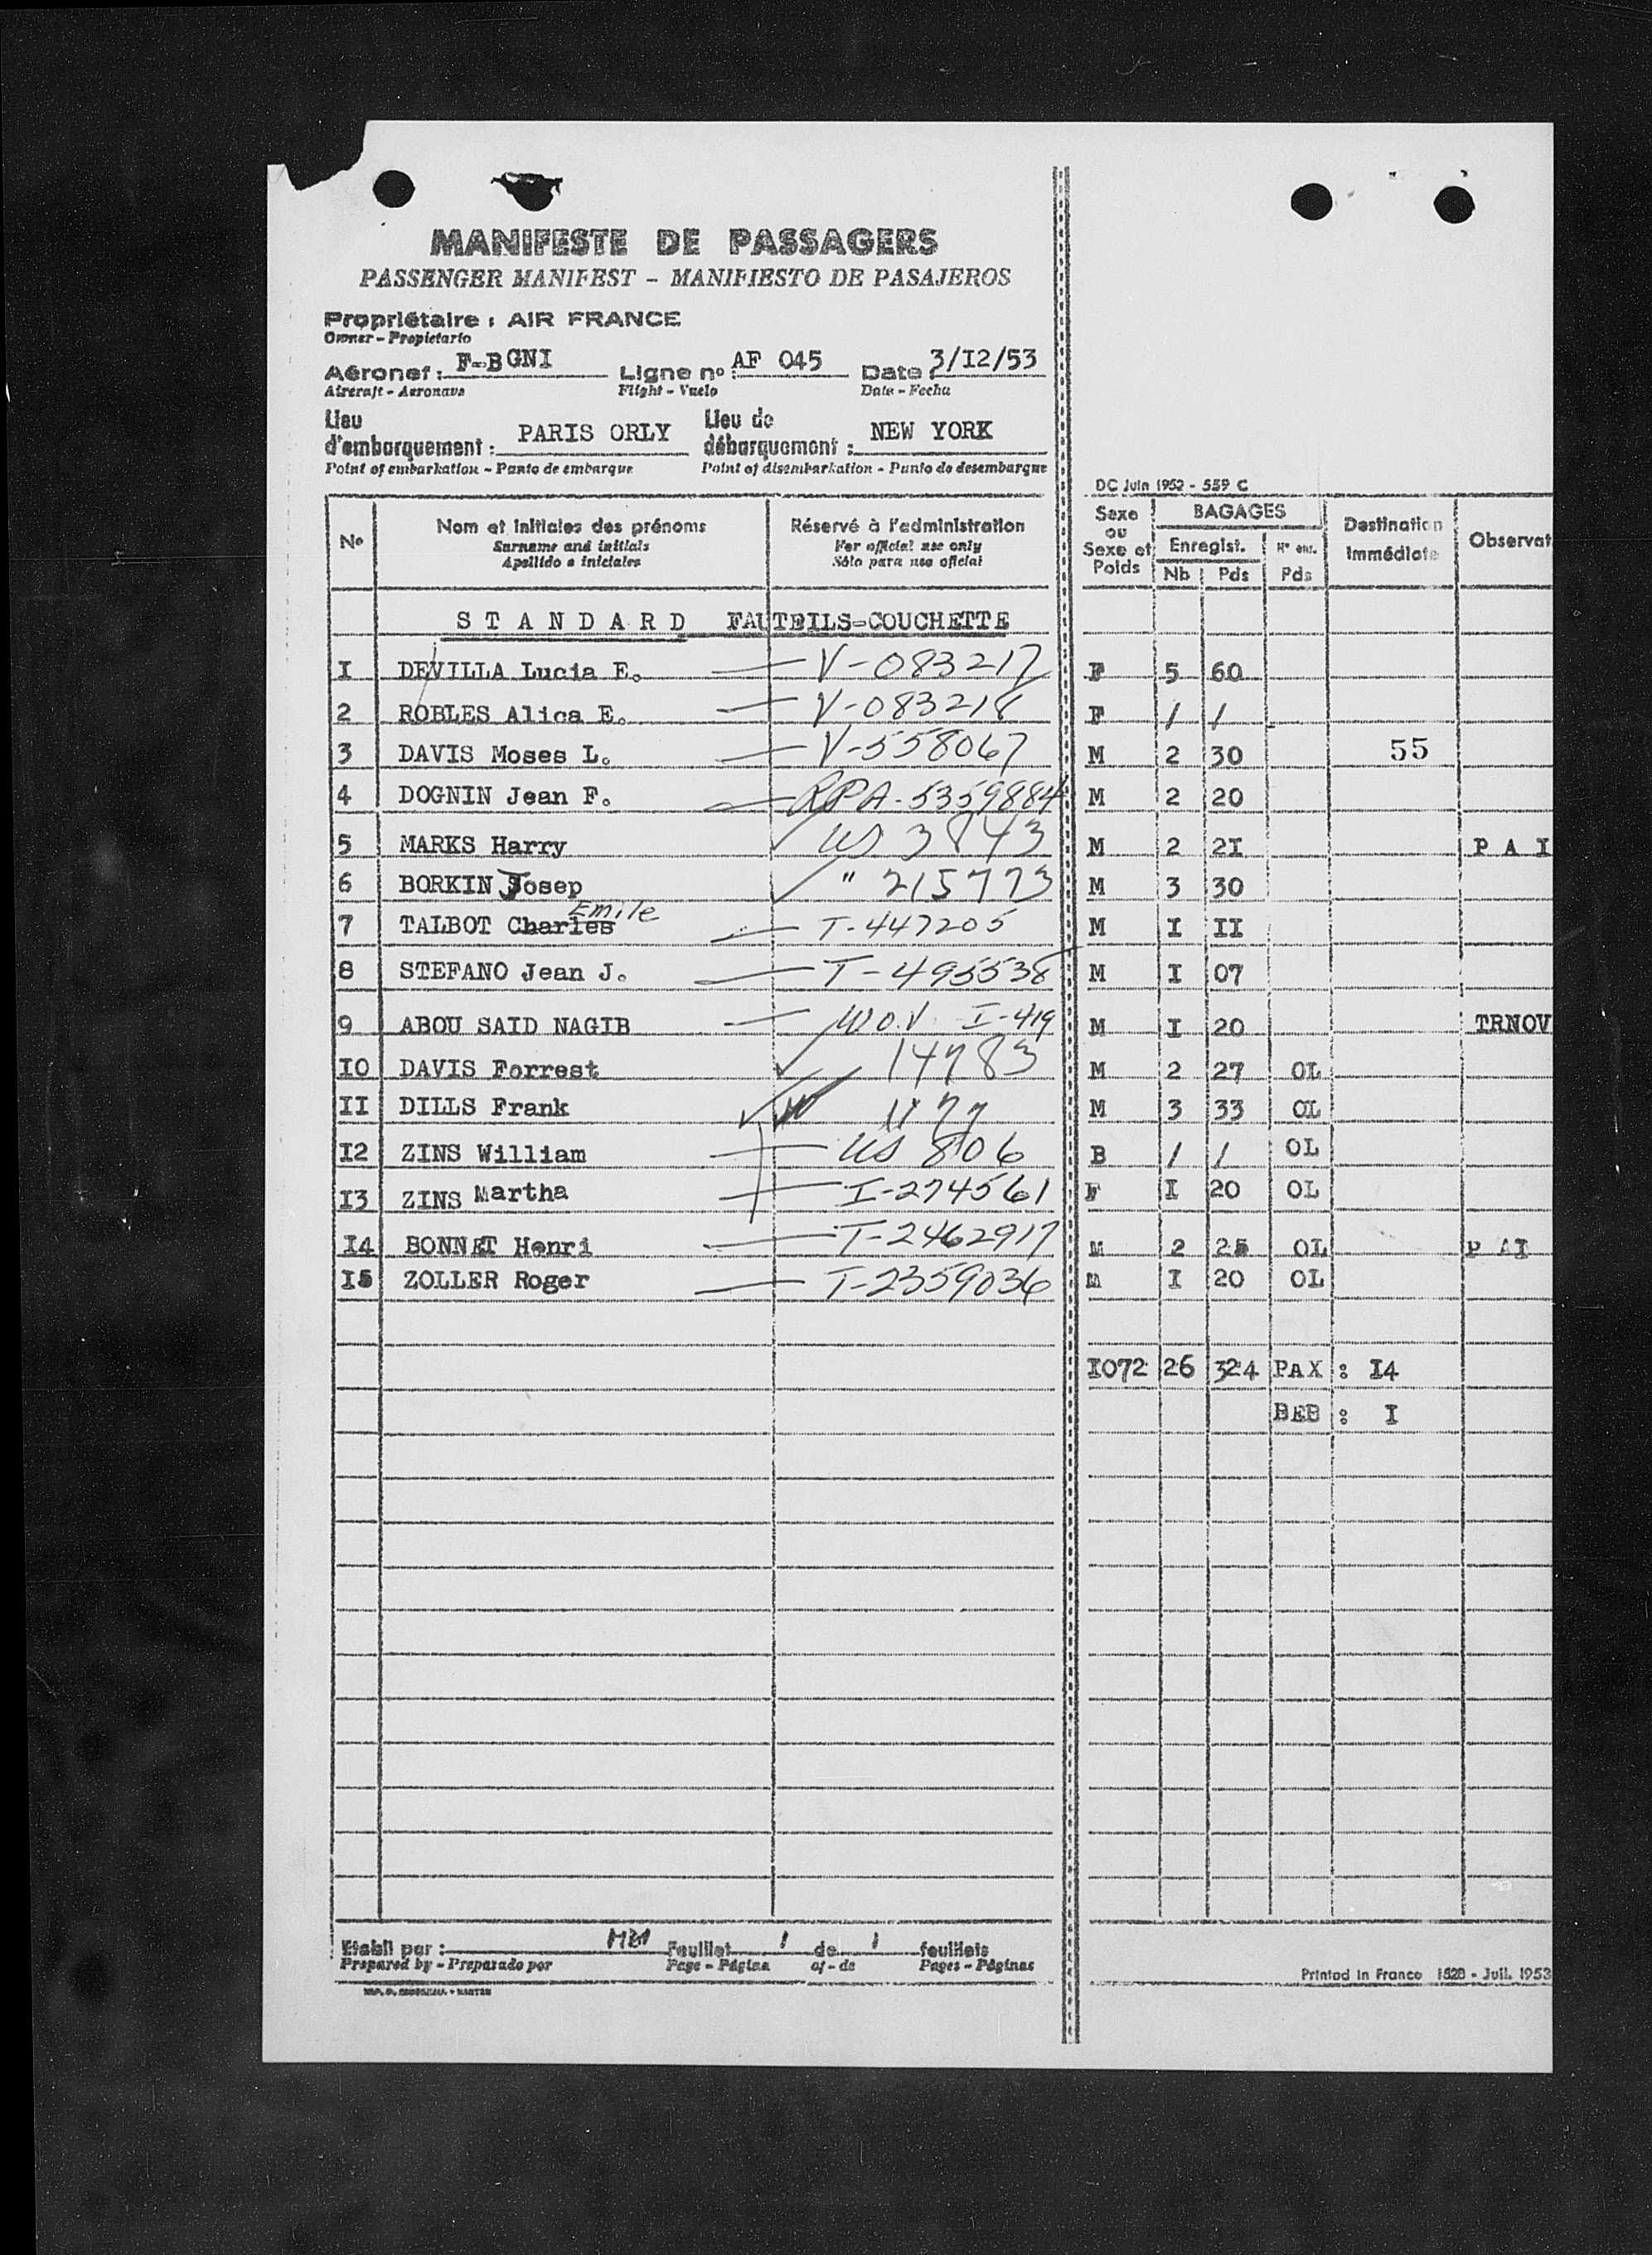 MANIFESTE DE PASSAGERS
PASSENGER MANIFEST - MANIFIESTO DE PASAJEROS
Propriétaire : AIR FRANCE
Owner - Propietario
Aéronef : F-BGNI Ligne nº : AF 045 Date : 3/I2/53
Aircraft - Aeronave Flight - Vuelo Date - Fecha
Lieu d'embarquement : PARIS ORLY Lieu de débarquement : NEW YORK
Point of embarkation - Punto de embarque Point of disembarkation - Punto de desembarque
DC Juin 1952 - 559 C
Nº Nom et initiales des prénoms Réservé à l'administration Sexe ou Sexe et Poids BAGAGES Destination immédiate Observat
Surname and initials For official use only Enregist. Nº enr.
Apellido e iniciales Sólo para uso oficial Nb Pds Pds
STANDARD FAUTEILS-COUCHETTE
I DEVILLA Lucia E. V-083217 F 5 60
2 ROBLES Alica E. V-083218 F / /
3 DAVIS Moses L. V-558067 M 2 30 55
4 DOGNIN Jean F. RPA-5359884 M 2 20
5 MARKS Harry US 3843 M 2 2I P A I
6 BORKIN Josep " 215773 M 3 30
7 TALBOT Charles Emile T-447205 M I II
8 STEFANO Jean J. T-495538 M I 07
9 ABOU SAID NAGIB W.O.V. I-419 M I 20 TRNOV
I0 DAVIS Forrest 14783 M 2 27 OL
II DILLS Frank 1177 M 3 33 OL
I2 ZINS William US 806 B / / OL
I3 ZINS Martha I-274561 F I 20 OL
I4 BONNET Henri T-2462917 M 2 25 OL P AI
I5 ZOLLER Roger T-2359036 M I 20 OL
I072 26 324 PAX : I4
BEB : I
Etabli par : Feuillet 1 de 1 feuillets
Prepared by - Preparado por Page - Página of - de Pages - Páginas
Printed in France 1528 - Juil. 1953